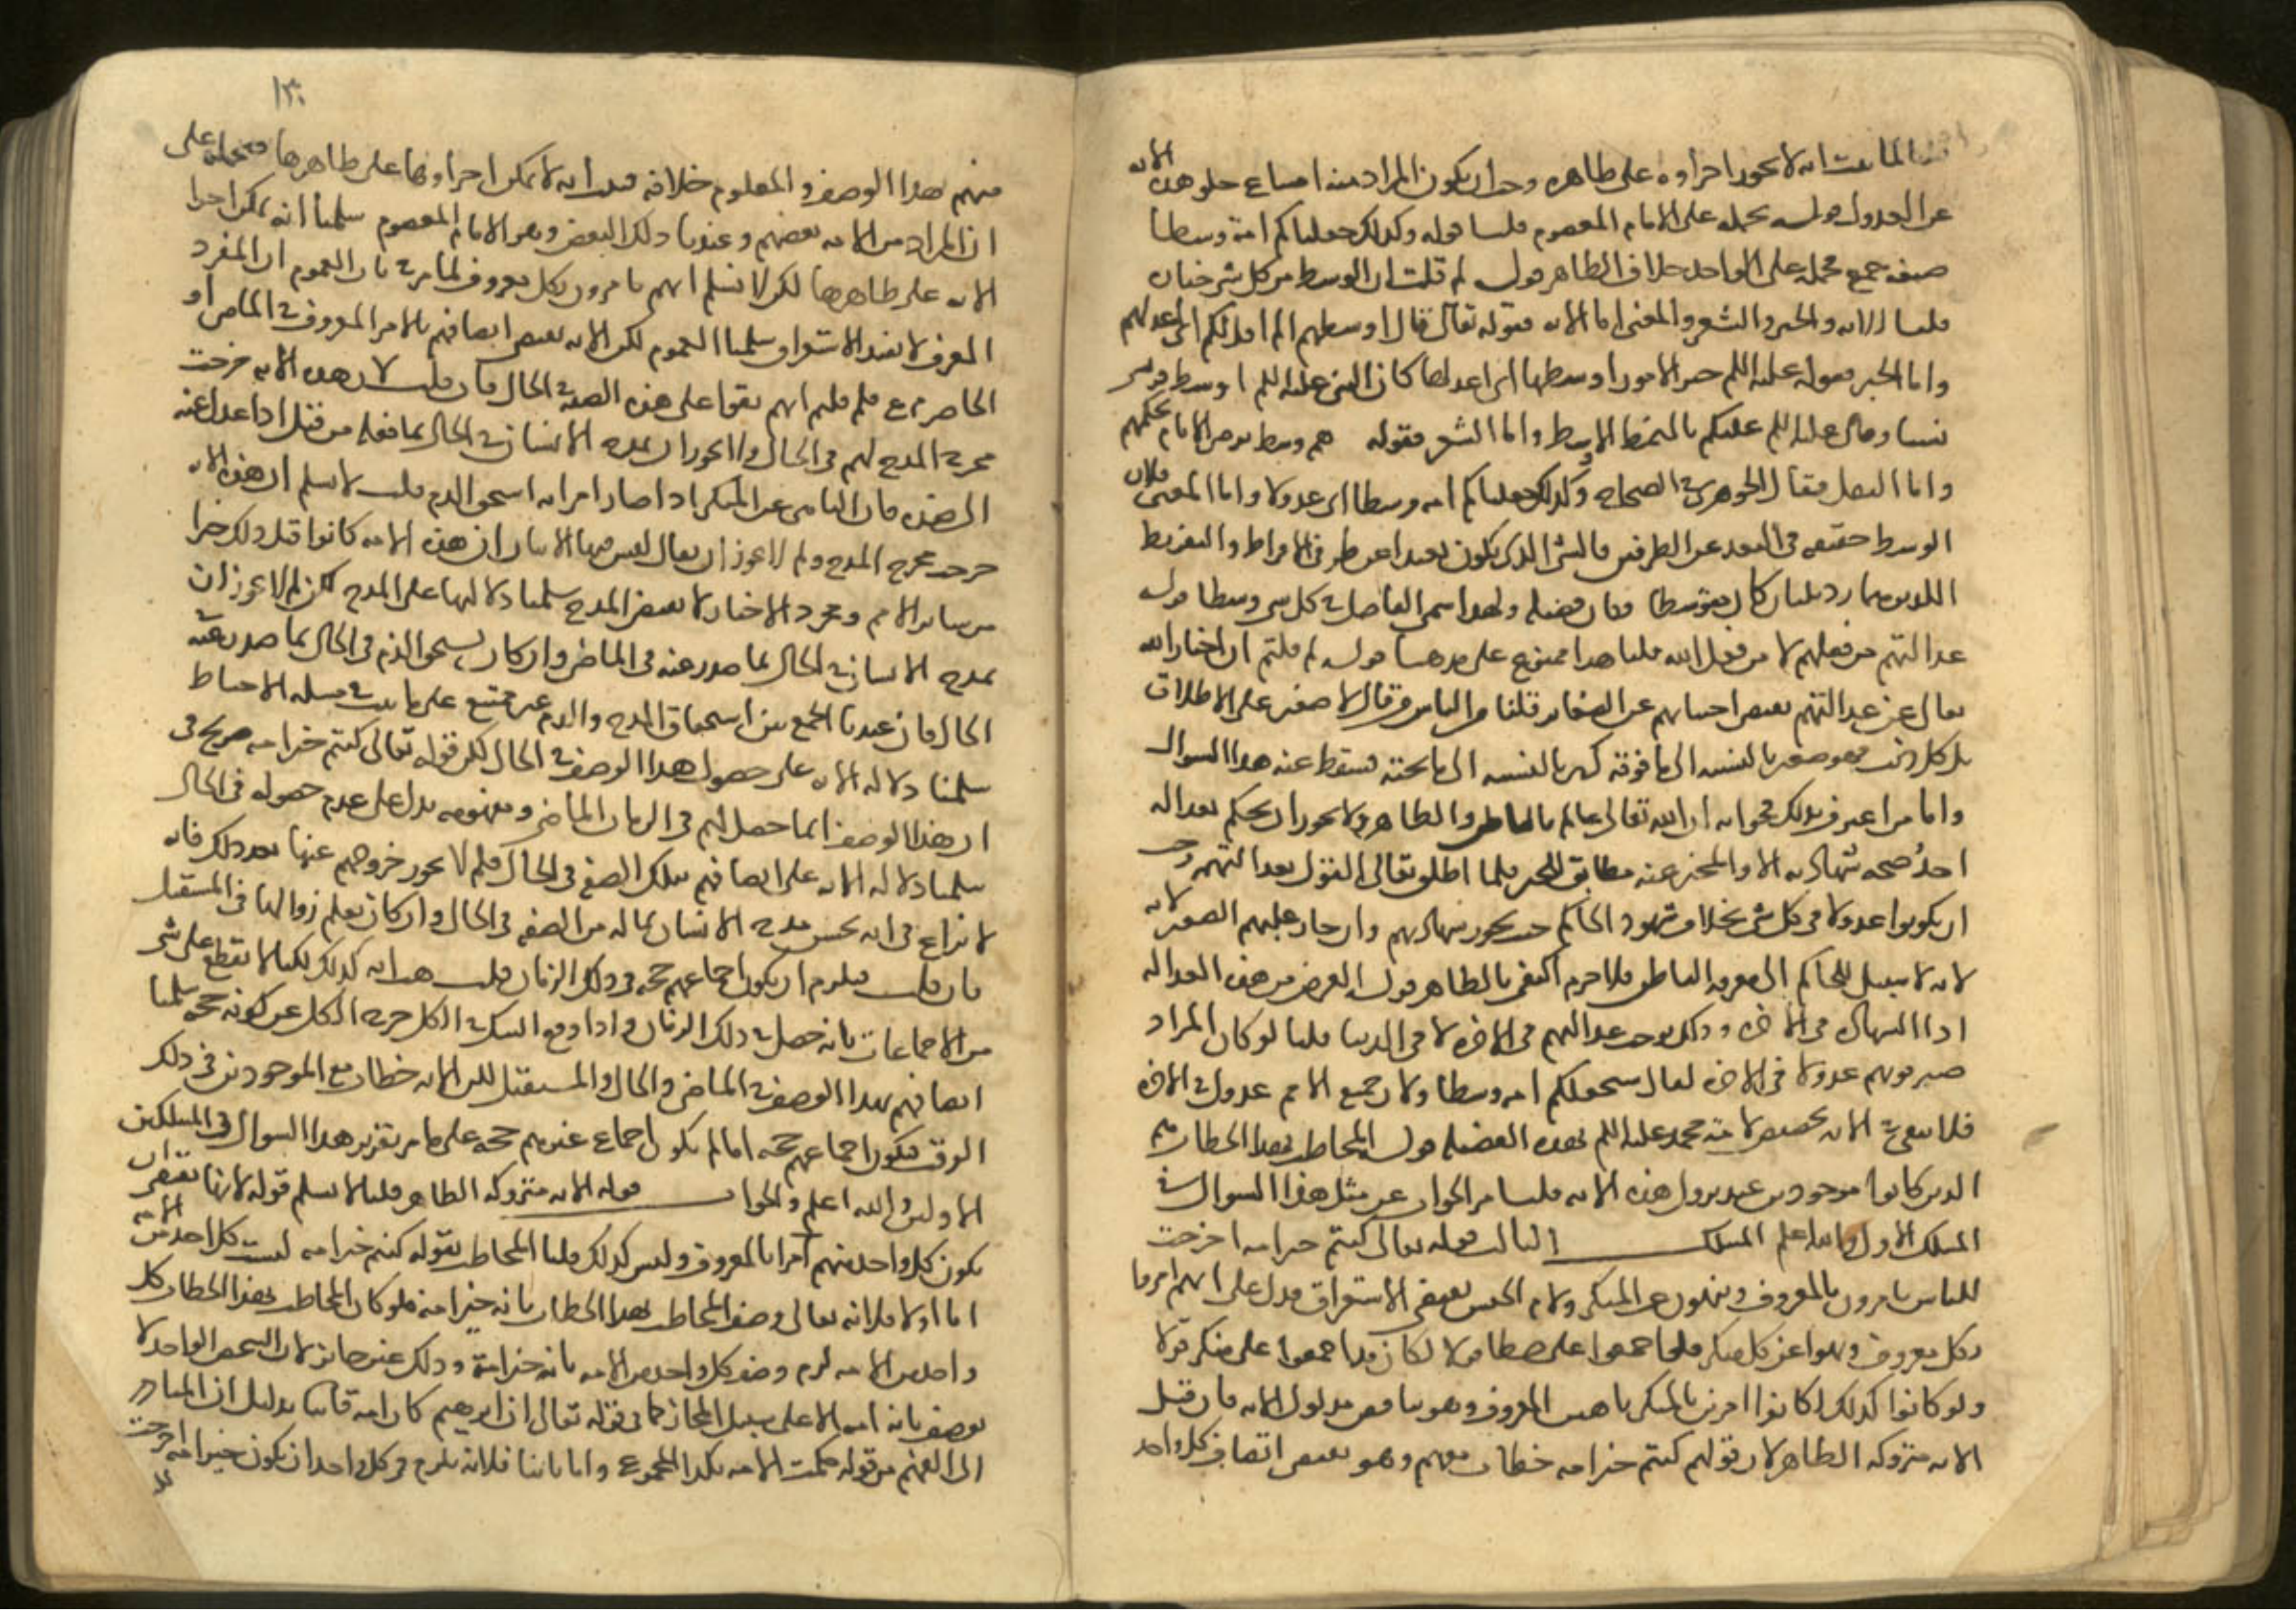 لما ثبت انه لا يجوز اجراوه على ظاهره وجب ان يكون المراد منه امتناع خلو هذه الامة
عن العدول قوله نحمله على الامام المعصوم قلنا قوله وكذلك جعلناكم امة وسطا
صيغة جمع فحمله على الواحد خلاف الظاهر قوله لم قلت ان الوسط من كل شي خياره
قلنا للاية والخبر والشعر والمعنى اما الاية فقوله تعالى قال اوسطهم الم اقل لكم اي اعدلهم
واما الخبر فقوله عليه السلم خير الامور اوسطها اي اعدلها كان النبي عليه السلم اوسط قريش
نسبا وقال عليه السلم عليكم بالنمط الاوسط واما الشعر فقوله هم وسط يرضى الانام بحكمهم
واما النقل فقال الجوهري في الصحاح وكذلك جعلناكم امة وسطا اي عدولا واما المعنى فلان
الوسط حقيقة في البعد عن الطرفين فالشي الذي يكون بعيدا عن طرفي الافراط والتفريط
اللذين هما رديان كان متوسطا فكان فضيلة ولهذا سمي الفاضل في كل شي وسطا قوله
عدالتهم من فعلهم لا من فعل الله قلنا هذا ممنوع على مذهبنا قوله لم قلتم ان اخبار الله
تعالى عن عدالتهم يقتضي اجتنابهم عن الصغاير قلنا من الناس من قال لا صغير على الاطلاق
بل كل ذنب فهو صغير بالنسبة الى ما فوقه كبير بالنسبة الى ما تحته فسقط عنه هذا السوال
واما من اعترف بذلك فجوابه ان الله تعالى عالم بالباطن والظاهر فلا يجوز ان يحكم بعدالة
احد صحة شهادته الا والمخبر عنه مطابق للخبر فلما اطلق تعالى القول بعدالتهم وجب
ان يكونوا عدولا في كل شي بخلاف شهود الحاكم حيث يجوز شهادتهم وان جاز عليهم الصغير لانه
لانه لا سبيل للحاكم الى معرفة الباطن فلا جرم اكتفى بالظاهر قوله الغرض من هذه العدالة
اداء الشهادة في الاخرة وذلك يوجب عدالتهم في الاخرة لا في الدنيا قلنا لو كان المراد
صيرورتهم عدولا في الاخرة لقال سنجعلكم امة وسطا ولان جميع الامم عدول في الاخرة
فلا يبقى في الاية تخصيص لامة محمد عليه السلم بهذه الفضيلة قوله المخاطب بهذا الخطاب هم
الذين كانوا موجودين عند نزول هذه الاية قلنا مر الجواب عن مثل هذا السوال في
المسلك الاول والله اعلم المسلك الثالث قوله تعالى كنتم خير امة اخرجت
للناس تامرون بالمعروف وتنهون عن المنكر ولام الجنس يقتضي الاستغراق فدل على انهم امروا
بكل معروف ونهوا عن كل منكر فلو اجمعوا على خطا قولا لكان قد اجمعوا على منكر قولا
ولو كانوا كذلك لكانوا امرين بالمنكر ناهين المعروف وهو يناقض مدلول الاية فان قيل
الاية متروكة الظاهر لان قولهم كنتم خير امة خطاب معهم وهو يقتضي اتصاف كل واحد
١٣٠
منهم بهذا الوصف والمعلوم خلافه فثبت انه لا يمكن اجراوها على ظاهرها فنحمله على
ان المراد من الامة بعضهم وعندنا ذلك البعض وهو الامام المعصوم سلمنا انه يمكن اجرا
الاية على ظاهرها لكن لا نسلم انهم يامرون بكل معروف لما مر في باب العموم ان المفرد
المعرف لا يفيد الاستغراق سلمنا العموم لكن الاية تقتضي اتصافهم بالامر بالمعروف في الماضي او
الحاضر ع فلم قلتم انهم بقوا على هذه الصفة في الحال فان قلت لان هذه الاية خرجت
مخرج المدح لهم في الحال ولا يجوز ان يمدح الانسان في الحال بما فعله من قبل اذا عدل عنه
الى ضده فان الناهي عن المنكر اذا صار امرا به استحق الذم قلت لا نسلم ان هذه الاية
خرجت مخرج المدح ولم لا يجوز ان يقال ليس فيها الا بيان ان هذه الامة كانوا قبل ذلك خيرا
من ساير الامم ومجرد الاخبار لا يقتضي المدح سلمنا دلالتها على المدح لكن لم لا يجوز ان
يمدح الانسان في الحال بما صدر عنه في الماضي وان كان يستحق الذم في الحال بما صدر عنه في
الحال فان عندنا الجمع بين استحقاق المدح والذم غير ممتنع على ما ثبت في مسلة الاحباط
سلمنا دلالة الاية على حصول هذا الوصف في الحال لكن قوله تعالى كنتم خير امة صريح في
ان هذا الوصف انما حصل لهم في الزمان الماضي ومفهومه يدل على عدم حصوله في الحال
سلمنا دلالة الاية على اتصافهم بتلك الصفة في الحال فلم لا يجوز خروجهم عنها بعد ذلك فانه
لا نزاع في انه يحسن مدح الانسان بما له من الصفة في الحال وان كان يعلم زوالها في المستقبل
فان قلت فيلزم ان يكون اجماعهم حجة في ذلك الزمان قلت هب انه كذلك لكنا لا نقطع على شي
من الاجماعات بانه حصل في ذلك الزمان واذا وقع الشك في الكل خرج الكل عن كونه حجة سلمنا
اتصافهم بهذا الوصف في الماضي والحال والمستقبل لكن الاية خطاب مع الموجودين في ذلك
الوقت فيكون اجماعهم حجة اما لم يكون اجماع غيرهم حجة على ما مر تقرير هذا السوال في المسلكين
الاولين والله اعلم والجواب قوله الاية متروكة الظاهر قلنا لا نسلم قوله لانها تقتضي ان
يكون كل واحد منهم امرا بالمعروف وليس كذلك قلنا المخاطب بقوله كنتم خير امة ليست كل احد من الامة
اما اولا فلانه تعالى وصف المخاطب بهذا الخطاب بانه خير امة فلو كان المخاطب بهذا الخطاب كل
واحد من الامة لزم وصف كل واحد من الامة بانه خير امة وذلك غير جايز لان الشخص الواحد لا
يوصف بانه امة الا على سبيل المجاز كما في قوله تعالى ان ابرهيم كان امة قانتا بدليل ان المتبادر
الى الفهم من قوله حكمت الامة بكذا المجموع واما ثانيا فلانه يلزم في كل واحد ان يكون خير امة اخرجت